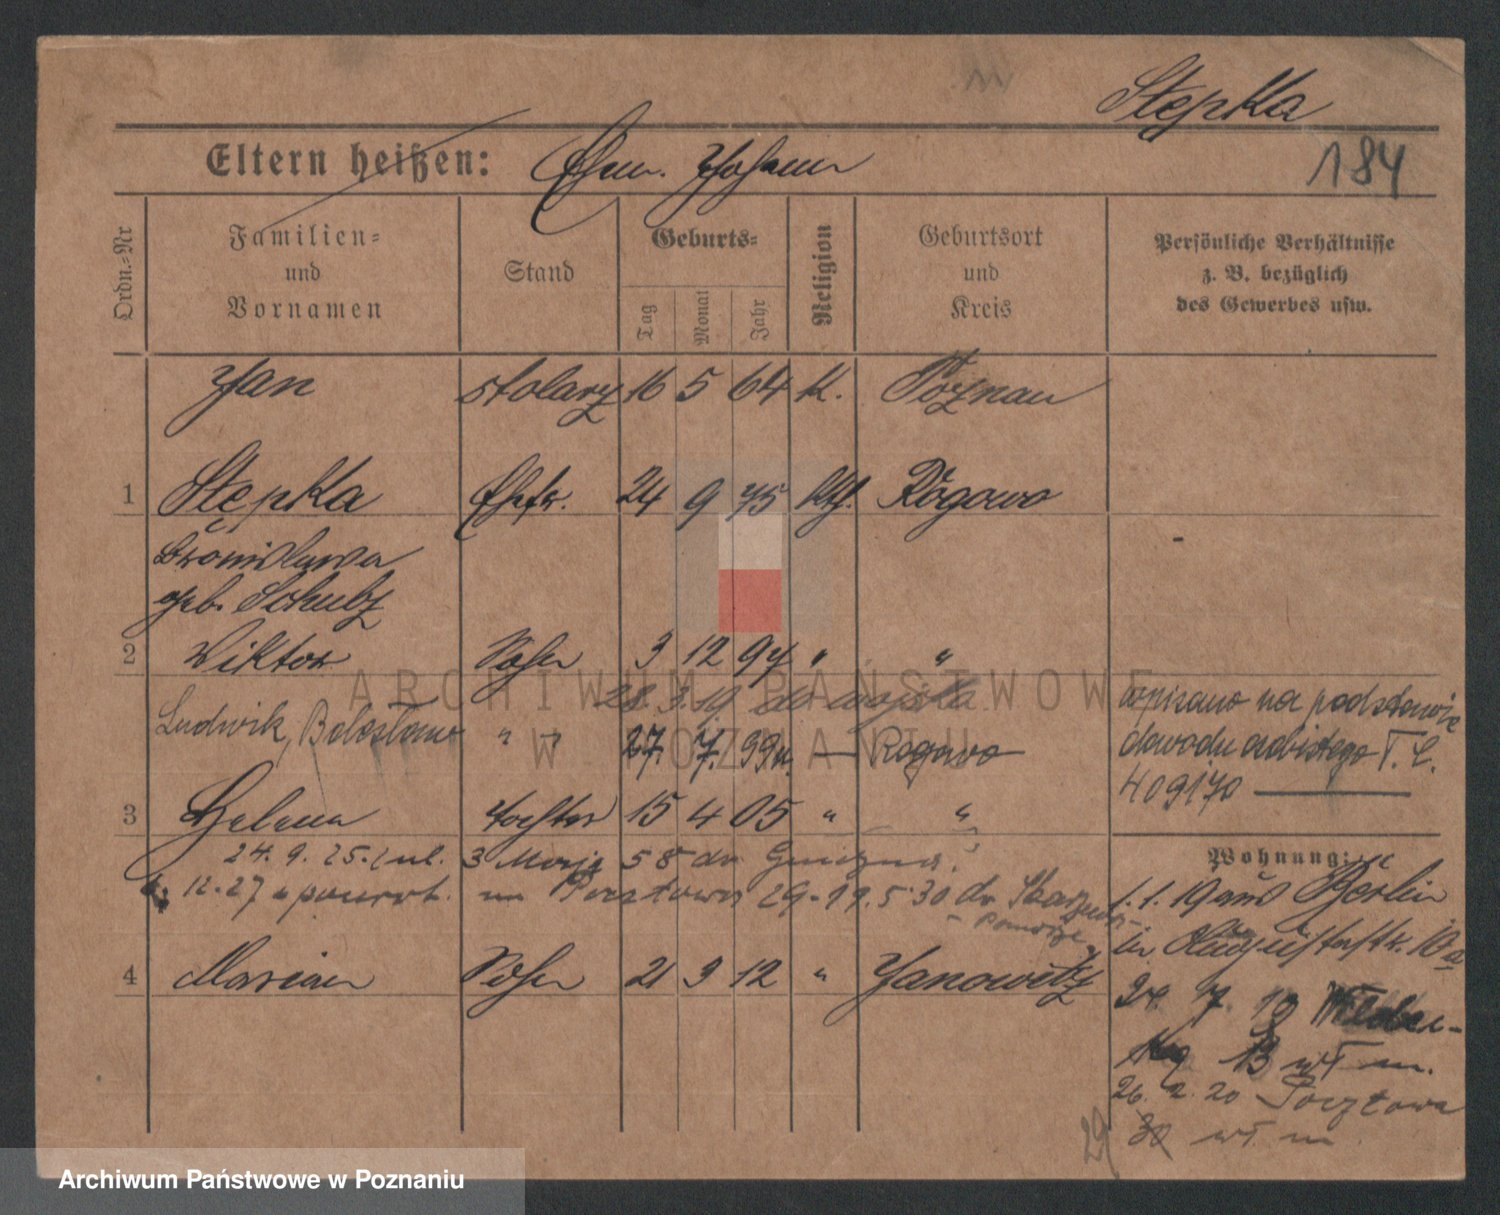 Stępka
184
Eltern heißen: Ehem. Johann
Ordn.-Nr
Familien-
und
Vornamen
Stand
Geburts-
Tag
Monat
Jahr
Religion
Geburtsort
und
Kreis
Persönliche Verhältnisse
z. B. bezüglich
des Gewerbes usw.
Jan stolarz 16 5 64 K. Poznan
1 Stępka Ehefr. 24 9 75 Kth. Rogowo
Bronislawa
geb. Schulz
2 Wiktor Sohn 3 12 94 " "
28. 3. 19 do wojska
Ludwik, Bolesław " " 27. 7. 99 — Rogowo
wpisano na podstawie
dowodu osobistego T. C.
409170
3 Helena Tochter 15 4 05 " "
24. 9. 25. 3 Maja 58 dr.
12. 27 powrot. Pocztowa 29 - 5. 30 dr.
4 Marian Sohn 21 3 12 " Janowitz
Wohnung:
1. 1. 19 aus Berlin
in Auguststr. 10a
24. 7. 19
13 wł m.
26. 2. 20 Pocztowa
30 wł. m.
29
ARCHIWUM PAŃSTWOWE
W POZNANIU
Archiwum Państwowe w Poznaniu